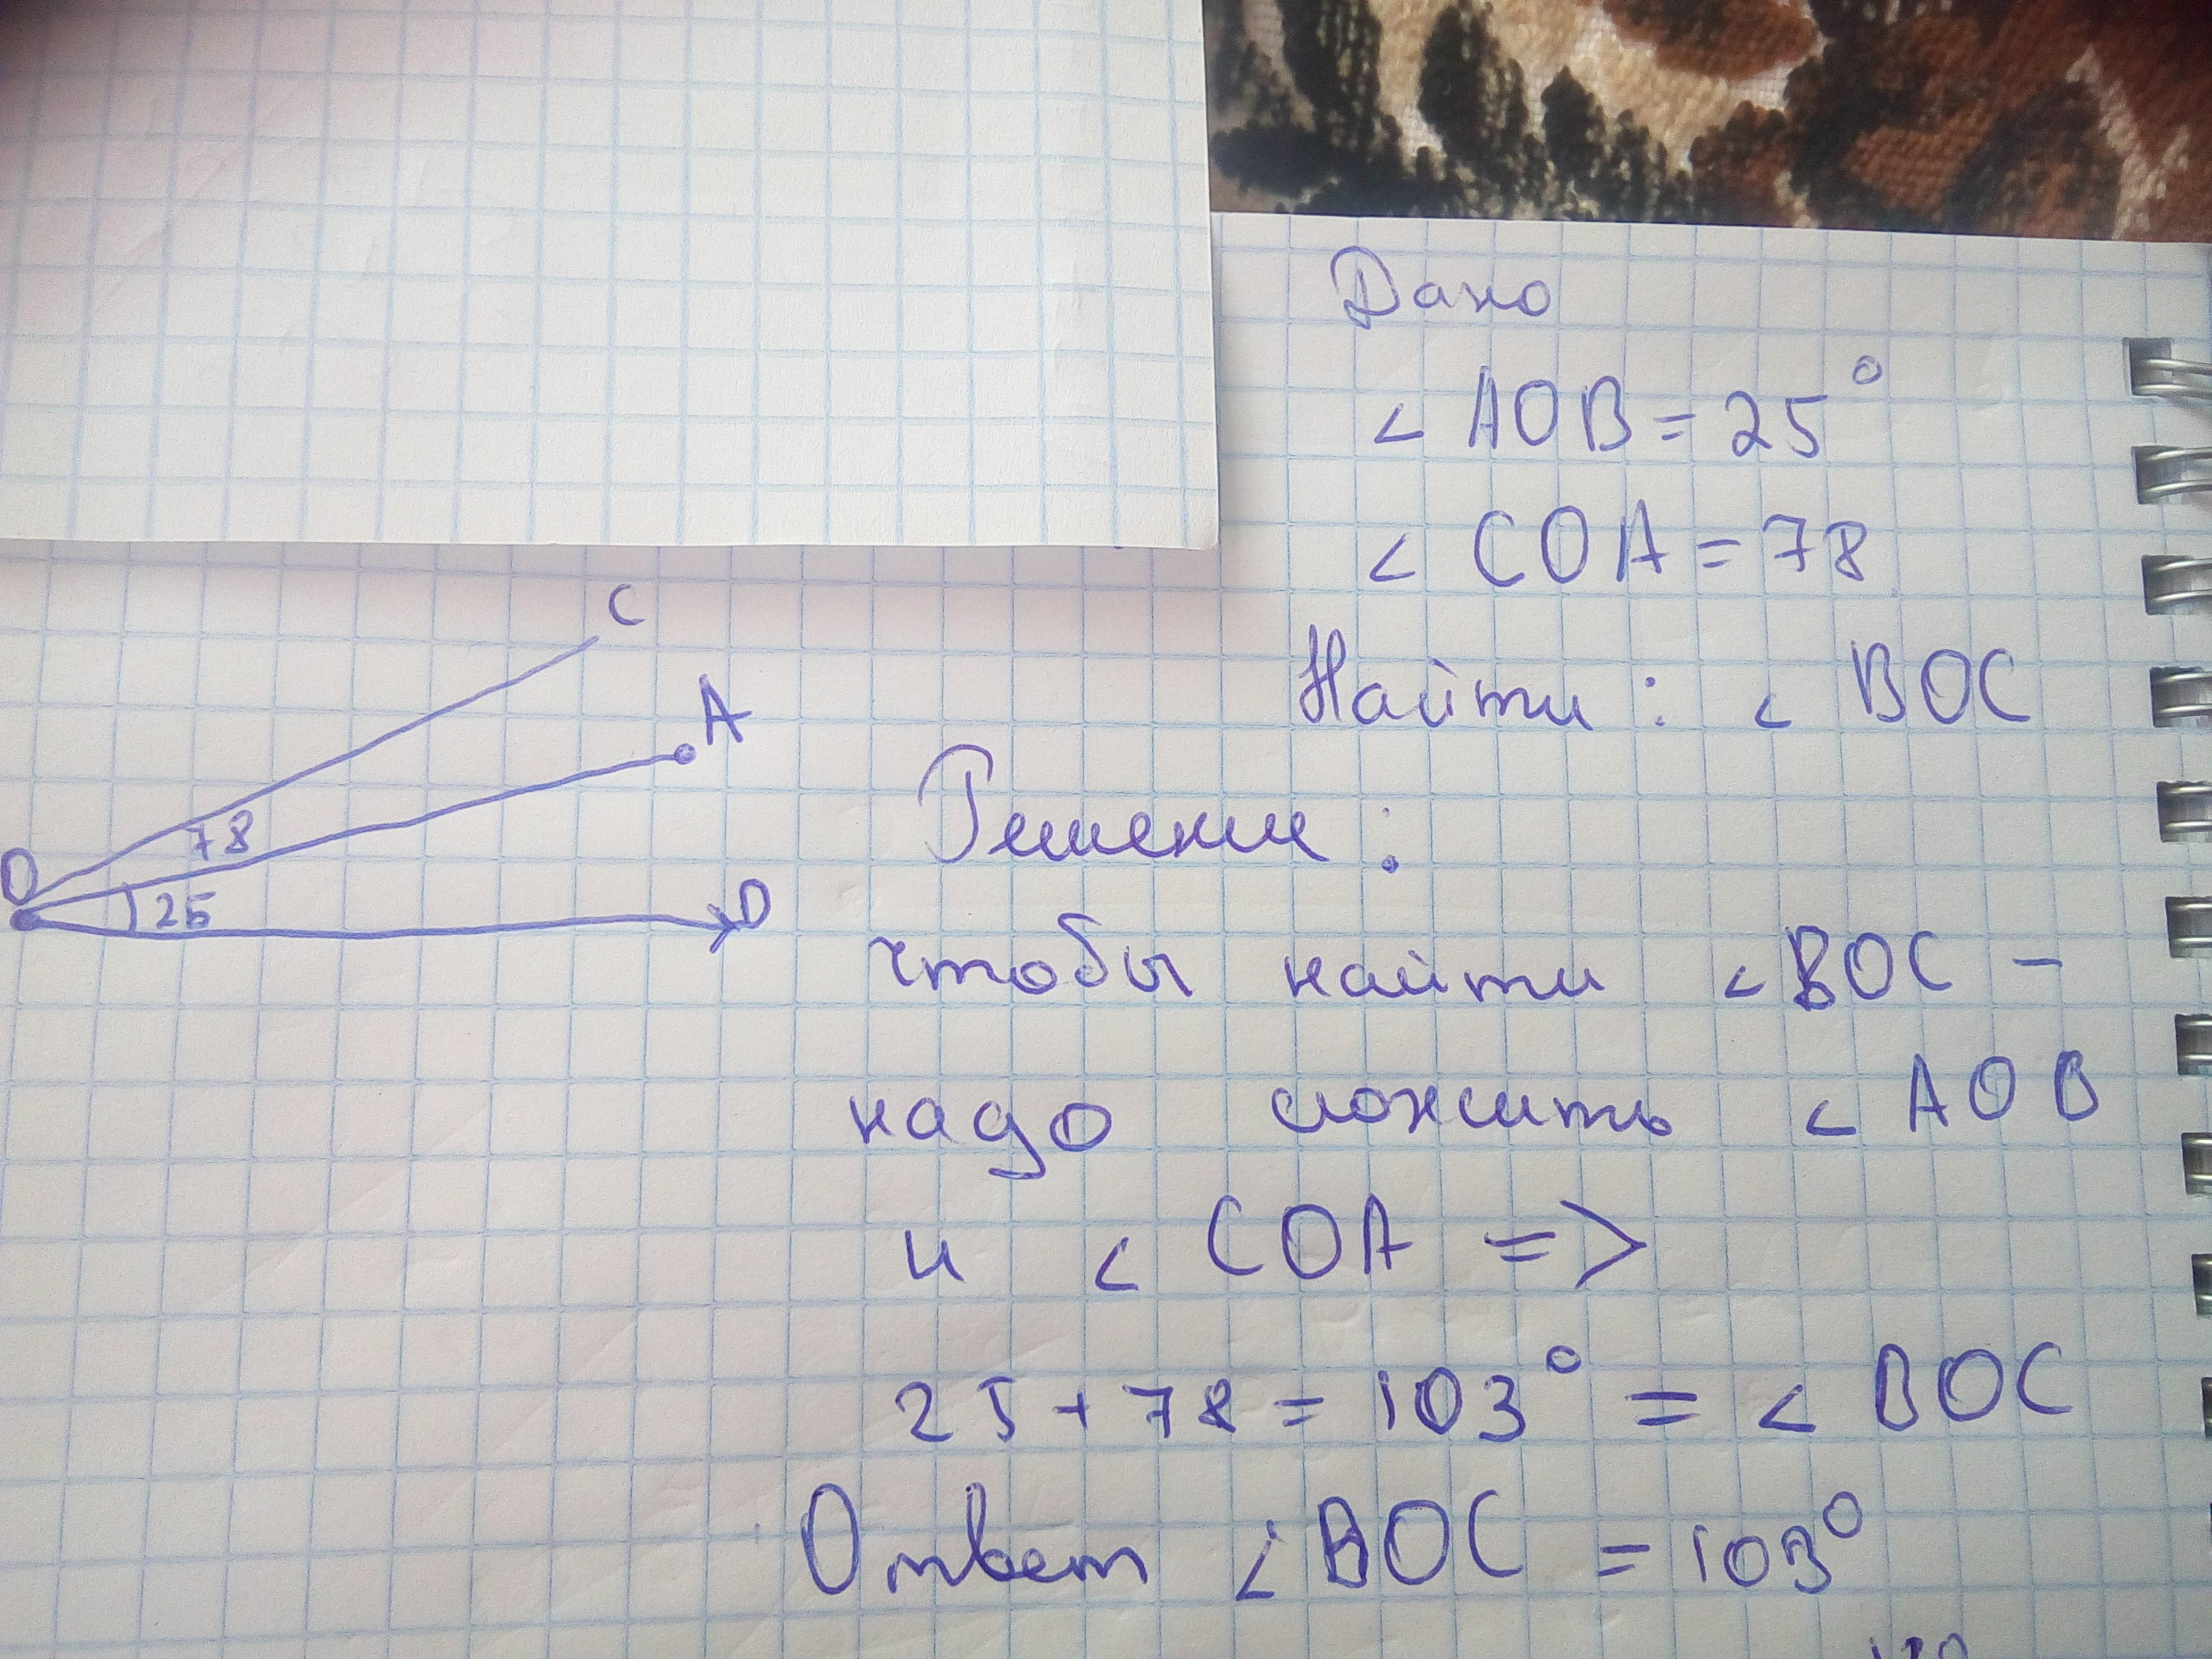 Дано
< AOB = 25°
< COA = 78
Найти : < BOC
C
A
78
O
25
D
Решение :
чтобы найти < BOC -
надо сложить < AOB
и < COA =>
25 + 78 = 103° = < BOC
Ответ < BOC = 103°